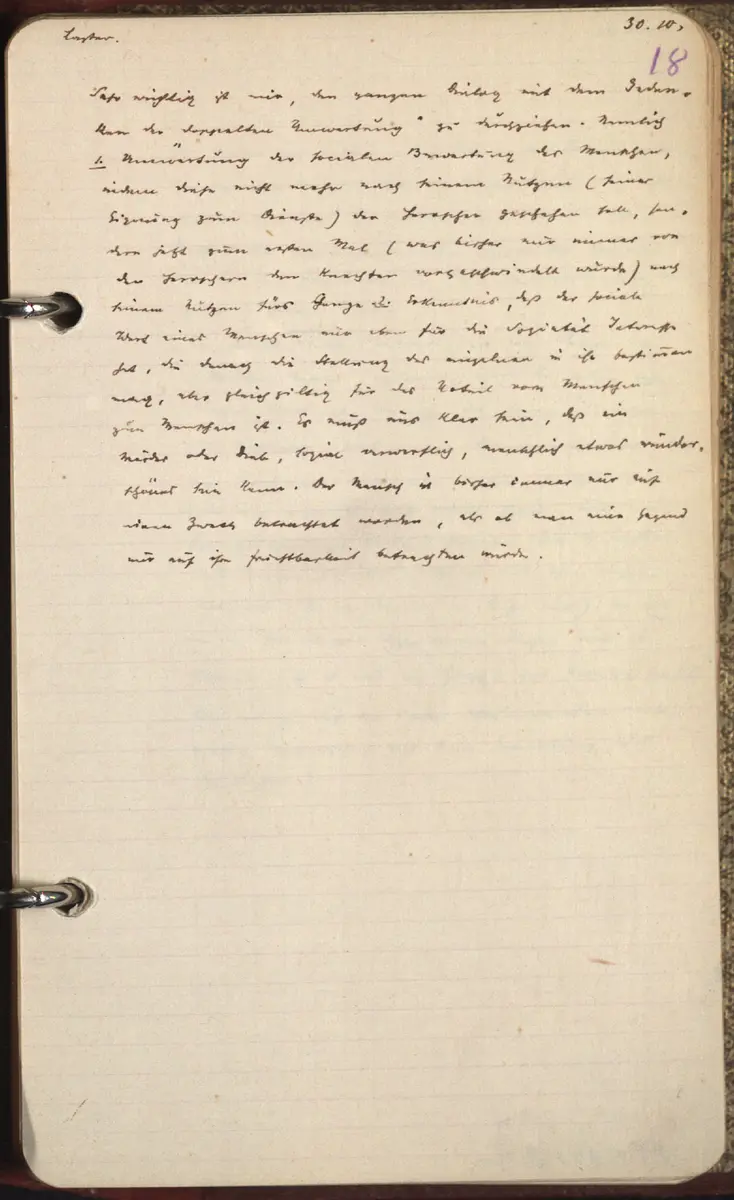 Laster.
30. 10.
18
Sehr wichtig ist mir, den ganzen Dialog mit dem Gedan-
ken der doppelten Umwertung" zu durchziehen. Nemlich
1. Umwertung der socialen Bewertung des Menschen,
indem diese nicht mehr nach seinem Nutzen (seiner
Eignung zum Dienste) der Herrscher geschehen soll, son-
dern jetzt zum ersten Mal (was bisher nur immer von
den Herrschern den Knechten vorgeschwindelt wurde) nach
seinem Nutzen fürs Ganze Erkenntnis, daß der sociale
Wert eines Menschen nur eben für die Sozietät Interesse
hat, die danach die Stellung des einzelnen in ihr bestimmen
mag, aber gleichgiltig für das Urteil vom Menschen
zum Menschen ist. Es muß uns klar sein, daß ein
Mörder oder Dieb, sozial verwerflich, menschlich etwas wunder-
schönes sein kann. Der Mensch ist bisher immer nur auf
einen Zweck betrachtet worden, als ob man eine Gegend
nur auf ihre Fruchtbarkeit betrachten würde.